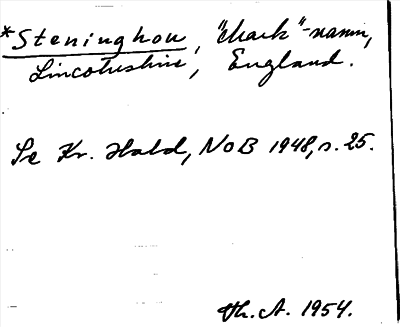 *Steninghou, "chark"-namn,
Lincolnshire, England.
Se Kr. Hald, NoB 1948, s. 25.
Th. A. 1954.